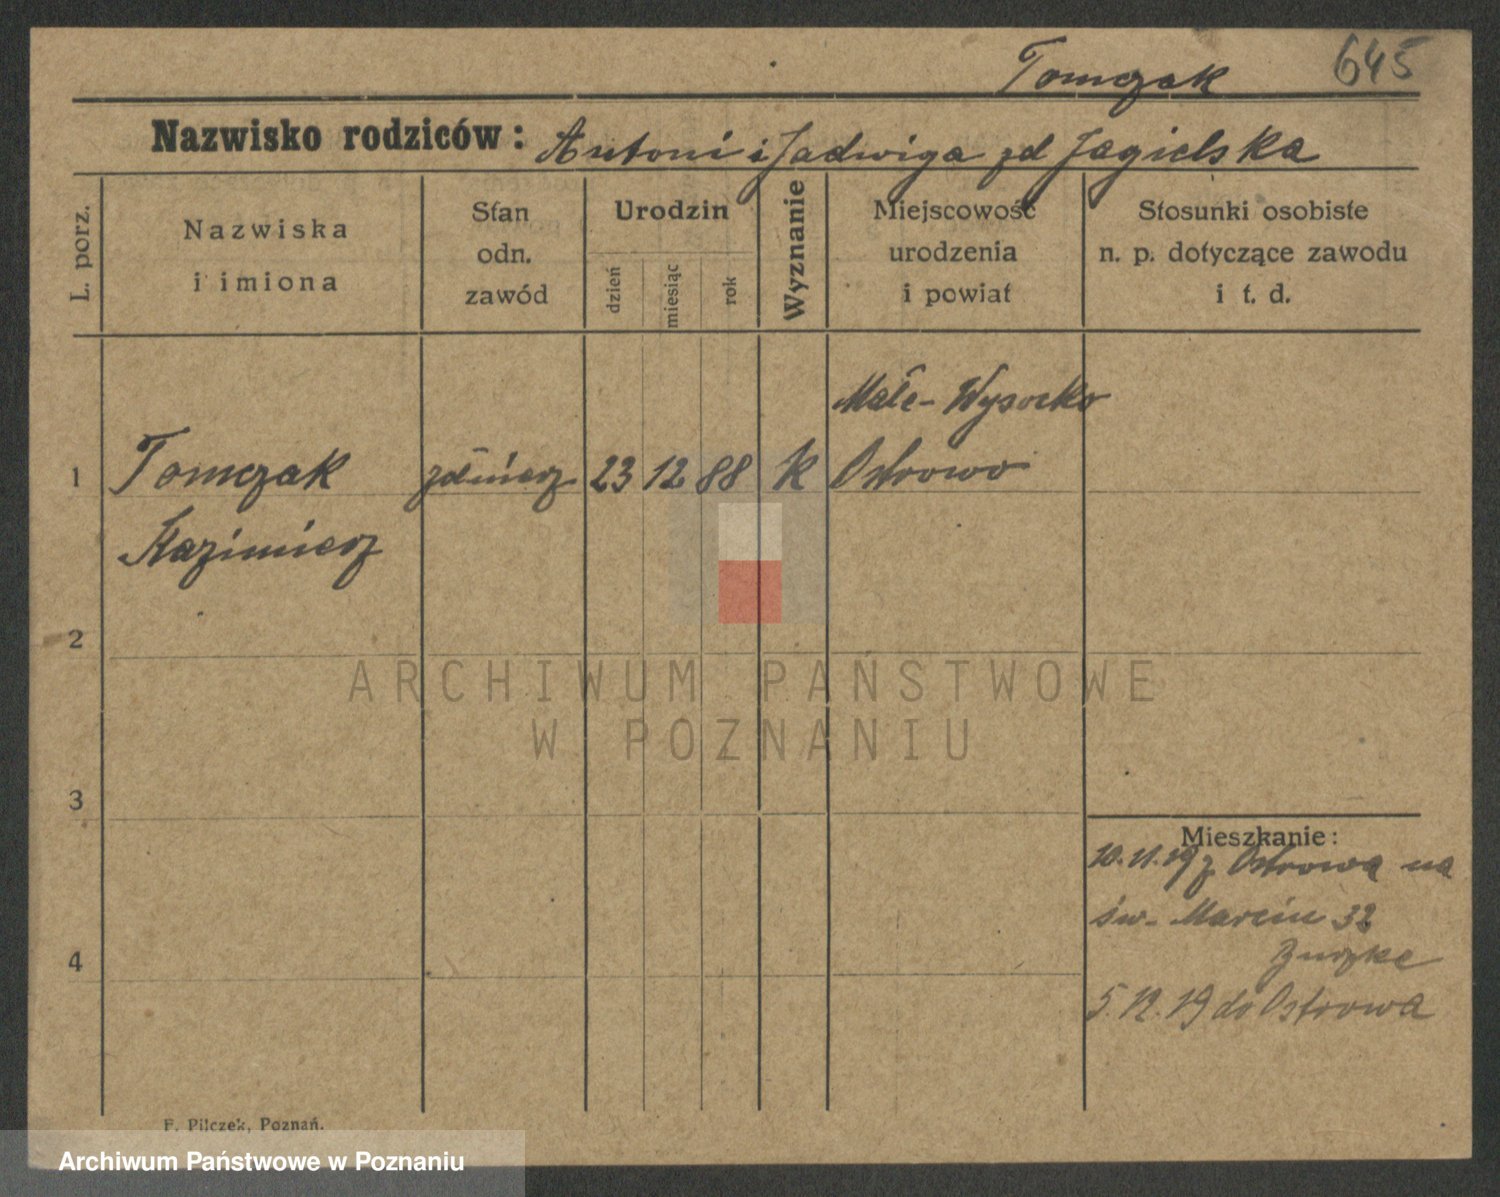 Tomczak 645
Nazwisko rodziców: Antoni i Jadwiga zd Jagielska
L. porz.
Nazwiska
i imiona
Stan
odn.
zawód
Urodzin
dzień
miesiąc
rok
Wyznanie
Miejscowość
urodzenia
i powiat
Stosunki osobiste
n. p. dotyczące zawodu
i t. d.
Małe-Wysocko
1 Tomczak 23 12 88 k Ostrowo
Kazimierz
2
ARCHIWUM PAŃSTWOWE
W POZNANIU
3
Mieszkanie:
10.11.19 z Ostrowa na
św. Marcin 32
4
5.12.19 do Ostrowa
F. Pilczek, Poznań.
Archiwum Państwowe w Poznaniu